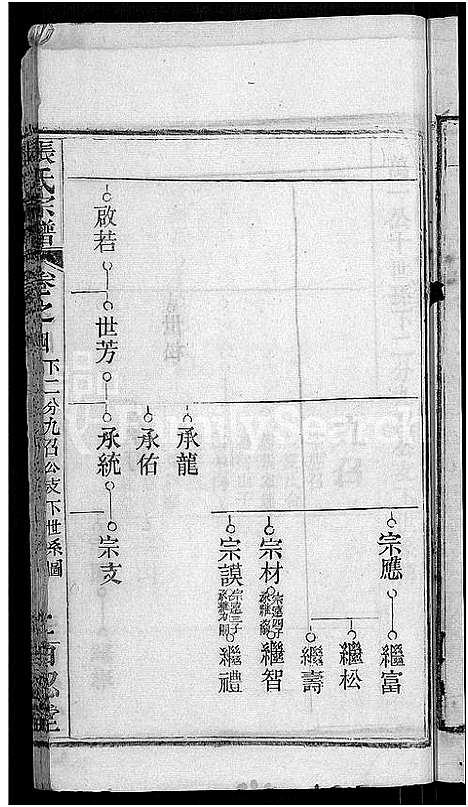 宗應
繼富
繼松
繼壽
宗材
繼智
宗謨
繼禮
承龍
承佑
啟若
世芳
承統
宗支
張氏宗譜
卷之四
下二分九召公支下世系圖
百忍堂
FamilySearch